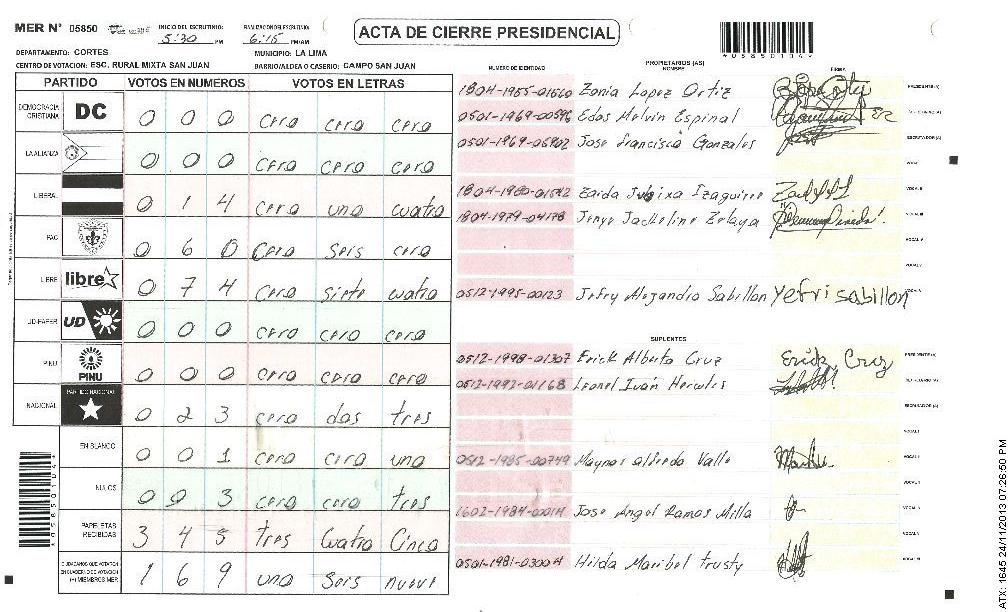 MER Nº 05850
INICIO DEL ESCRUTINIO: 5:30 PM
FINALIZACION DEL ESCRUTINIO: 6:15 PM/AM
ACTA DE CIERRE PRESIDENCIAL
*05850104*
DEPARTAMENTO: CORTES
MUNICIPIO: LA LIMA
CENTRO DE VOTACION: ESC. RURAL MIXTA SAN JUAN
BARRIO/ALDEA O CASERIO: CAMPO SAN JUAN
PARTIDO VOTOS EN NUMEROS VOTOS EN LETRAS
DEMOCRACIA CRISTIANA DC 0 0 0 cero cero cero
LA ALIANZA 0 0 0 cero cero cero
LIBERAL 0 1 4 cero uno cuatro
PAC 0 6 0 cero seis cero
LIBRE libre 0 7 4 cero siete cuatro
UD-FAPER UD 0 0 0 cero cero cero
PINU PINU 0 0 0 cero cero cero
NACIONAL PARTIDO NACIONAL 0 2 3 cero dos tres
EN BLANCO 0 0 1 cero cero uno
NULOS 0 0 3 cero cero tres
PAPELETAS RECIBIDAS 3 4 5 tres cuatro cinco
CIUDADANOS QUE VOTARON EN CUADERNO DE VOTACION (+) MIEMBROS MER 1 6 9 uno seis nueve
*05850104*
NUMERO DE IDENTIDAD PROPIETARIOS (AS) NOMBRE FIRMA
1804-1955-01660 Zonia Lopez Ortiz PRESIDENTE(A)
0501-1969-00596 Edas Melvin Espinal SECRETARIO(A)
0501-1969-05902 Jose francisco Gonzales ESCRUTADOR(A)
VOCAL I
1804-1980-01542 Zaida Julixa Izaguirre VOCAL II
1804-1979-04178 Jenye Jackeline Zelaya VOCAL III
VOCAL IV
VOCAL V
0512-1995-00123 Jefry Alejandro Sabillon yefri sabillon
SUPLENTES
0512-1998-01307 Erick Alberto Cruz Erick Cruz PRESIDENTE(A)
0512-1992-01168 Leonel Iván Hercules SECRETARIO(A)
ESCRUTADOR(A)
VOCAL I
0512-1985-00749 Maynor alfredo Valle VOCAL II
1602-1984-00014 Jose Angel Ramos Milla
0501-1981-03004 Hilda Maribel trusty
ATX: 1645 24/11/2013 07:26:50 PM